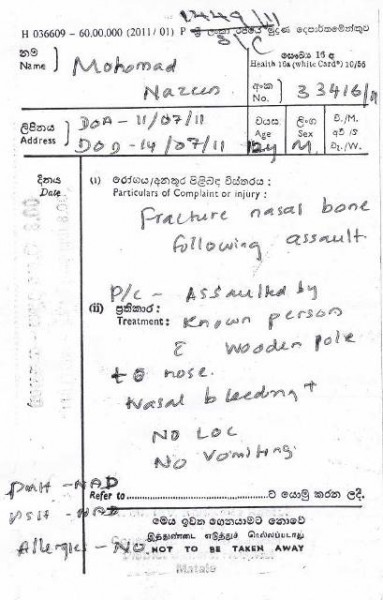 1449/11
H 036609 - 60,00,000 (2011/01) P ශ්‍රී ලංකා රජයේ මුද්‍රණ දෙපාර්තමේන්තුව
S/C
සෞඛ්‍ය 16 අ
Health 16a (White Card) 10/56
නම
Name } Mohomad
අංක
No. } 33416/11
ලිපිනය
Address } DOA - 11/07/11
DOD - 14/07/11
වයස
Age
ලිංග
Sex M.
වි./M.
අවි/S
වැ./W.
දිනය
Date
(i) රෝගය/අනතුර පිළිබඳ විස්තරය :
Particulars of Complaint or injury :
Fracture nasal bone
following assault
P/C - Assaulted by
(ii) ප්‍රතිකාර :
Treatment : Known person
c̄ wooden pole
to nose.
Nasal bleeding +
NO LOC
NO Vomiting
PMH - NAD
Refer to ........................ ට යොමු කරන ලදී.
PSH - NAD
මෙය ඉවත ගෙනයාමට නොවේ
இத்துண்டை எடுத்துச் செல்லப்படாது
Allergies - NO
NOT TO BE TAKEN AWAY
Matale